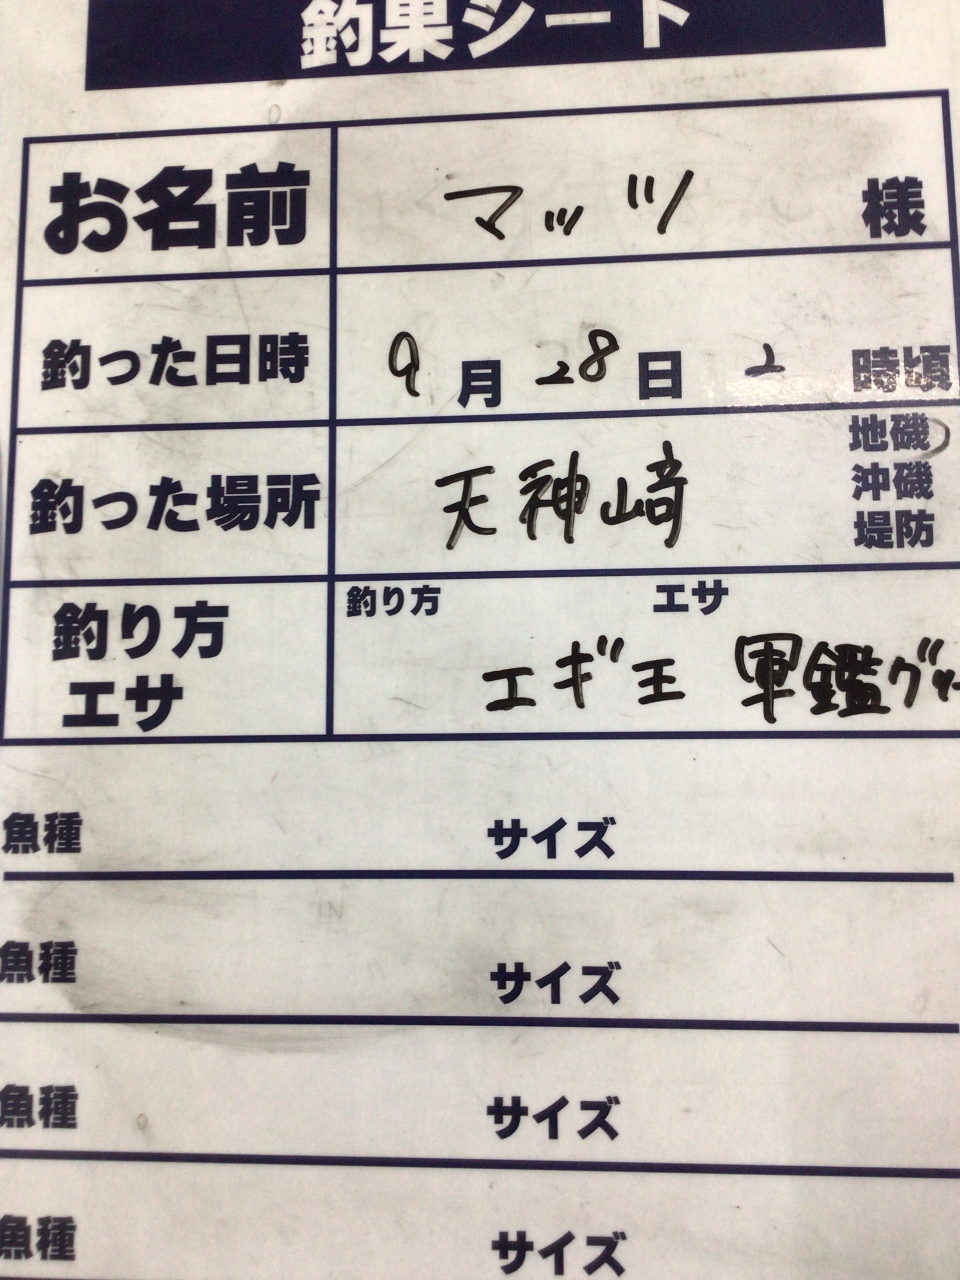 釣果シート
お名前 マッツ 様
釣った日時 9月28日 2時頃
釣った場所 天神崎 地磯
沖磯
堤防
釣り方 エサ
釣り方
エサ
エギ王 軍鑑グリー
魚種 サイズ
魚種 サイズ
魚種 サイズ
魚種 サイズ